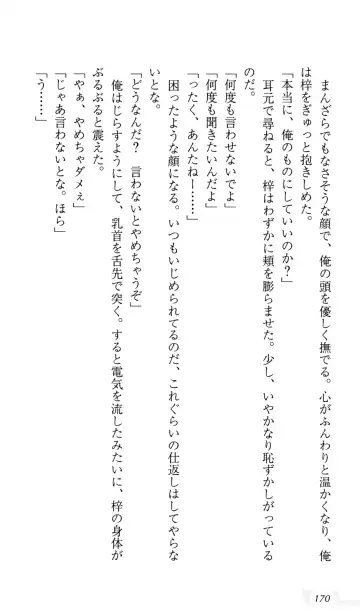 まんざらでもなさそうな顔で、俺の頭を優しく撫でる。心がふんわりと温かくなり、俺
は梓をぎゅっと抱きしめた。
「本当に、俺のものにしていいのか？」
　耳元で尋ねると、梓はわずかに頬を膨らませた。少し、いやかなり恥ずかしがっている
のだ。
「何度も言わせないでよ」
「何度も聞きたいんだよ」
「ったく、あんたねー……」
　困ったような顔になる。いつもいじめられてるのだ、これぐらいの仕返しはしてやらな
いとな。
「どうなんだ？　言わないとやめちゃうぞ」
　俺はじらすようにして、乳首を舌先で突く。すると電気を流したみたいに、梓の身体が
ぶるぶると震えた。
「やぁ、やめちゃダメぇ」
「じゃあ言わないとな。ほら」
「う……」
170